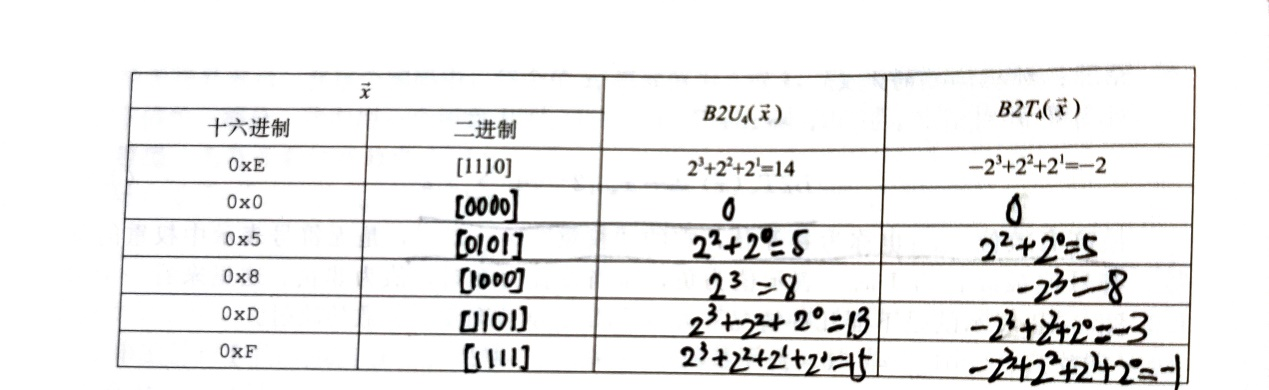 x⃗
B2U₄(x⃗) B2T₄(x⃗)
十六进制 二进制
0xE [1110] 2³+2²+2¹=14 −2³+2²+2¹=−2
0x0 [0000] 0 0
0x5 [0101] 2²+2⁰=5 2²+2⁰=5
0x8 [1000] 2³=8 -2³=-8
0xD [1101] 2³+2²+2⁰=13 -2³+2²+2⁰=-3
0xF [1111] 2³+2²+2¹+2⁰=15 -2³+2²+2¹+2⁰=-1